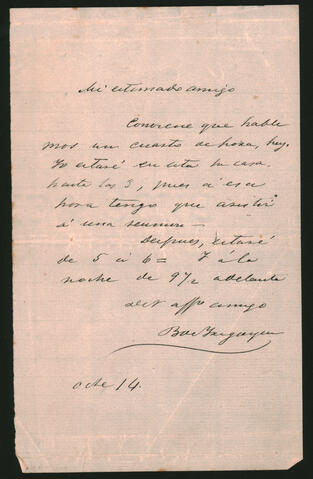 Mi estimado amigo
Conviene que hable
mos un cuarto de hora, hoy.
Yo estaré en esta su casa
hasta las 3, pues á esa
hora tengo que asistir
á una reunion—
Despues, estaré
de 5 á 6= Y á la
noche de 9½ adelante
affº amigo
Bdo Irigoyen
octe 14.